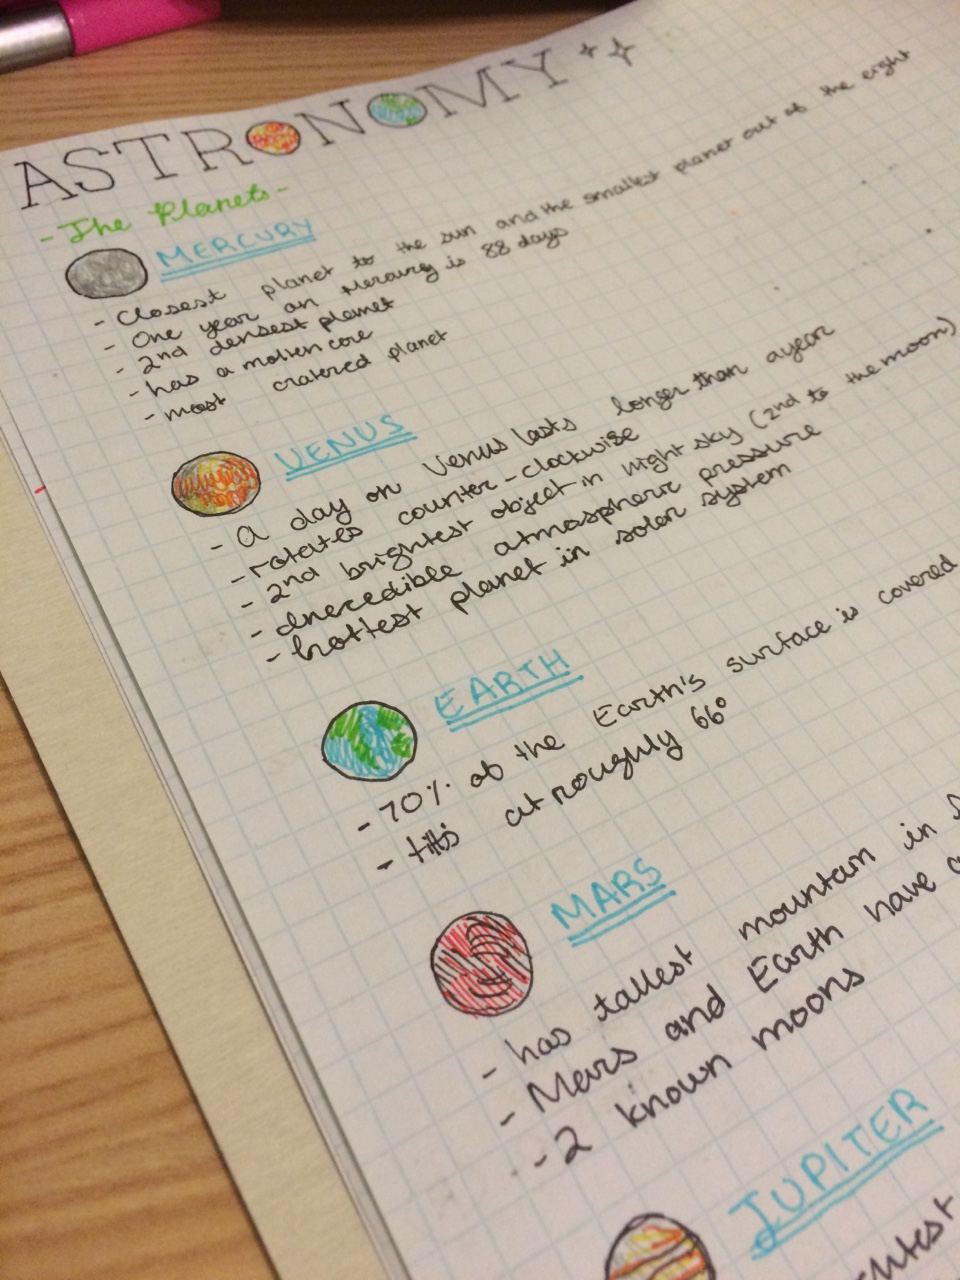 ASTRONOMY
- The Planets -
MERCURY
- Closest planet to the sun and the smallest planet out of the eight
- One year on Mercury is 88 days
- 2nd densest planet
- has a molten core
- most cratered planet
VENUS
- A day on Venus lasts longer than a year
- rotates counter-clockwise
- 2nd brightest object in night sky (2nd to the moon)
- Incredible atmospheric pressure
- hottest planet in solar system
EARTH
- 70% of the Earth's surface is covered
- tilts at roughly 66°
MARS
- has tallest mountain in
- Mars and Earth have
- 2 known moons
JUPITER